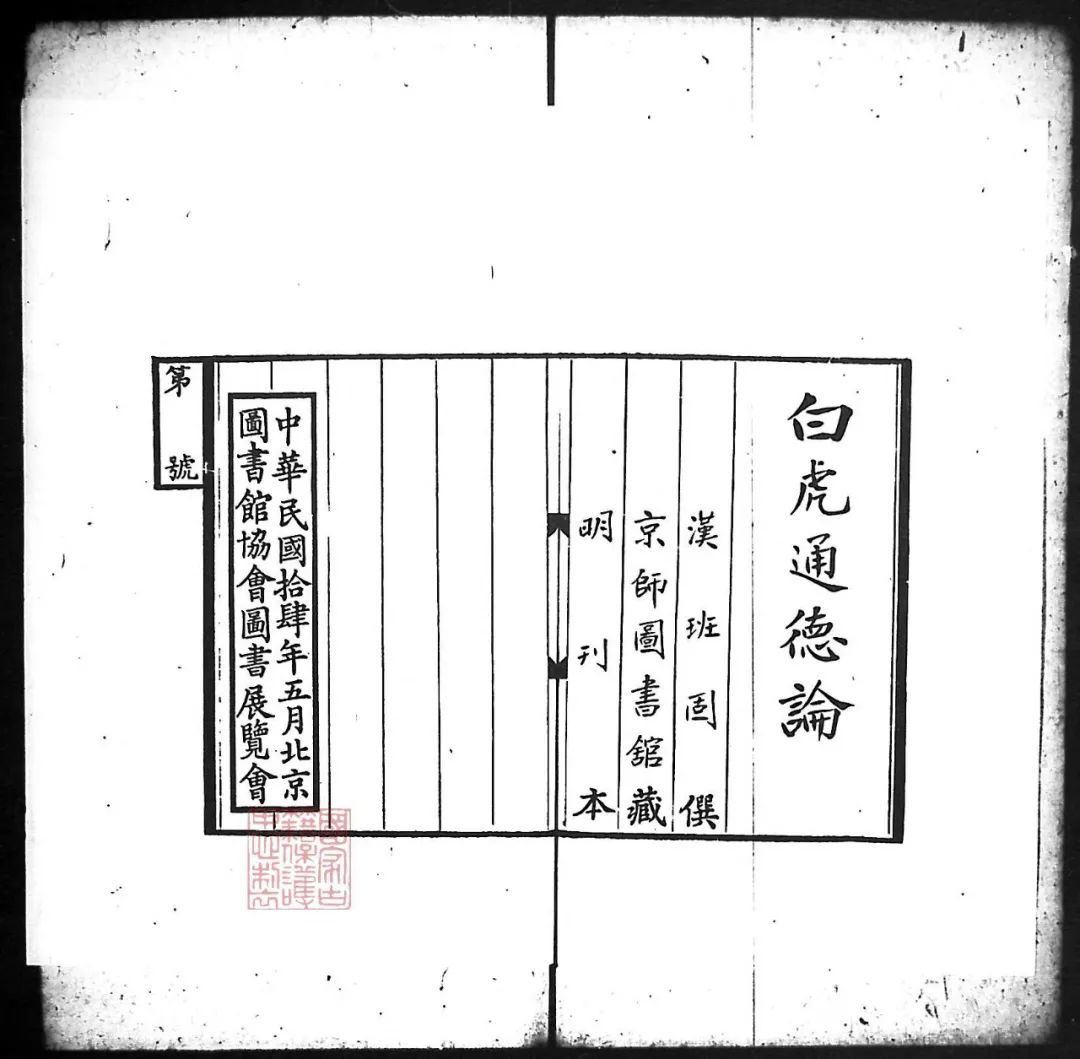 白虎通德論
漢班固撰
京師圖書舘藏
明刊本
中華民國拾肆年五月北京
圖書館協會圖書展覽會
第 號
國家古
籍保護
中心制